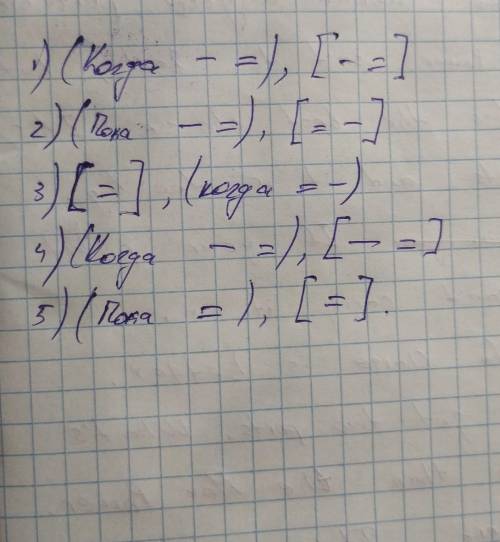 1) (Когда – =), [– =]
2) (Пока – =), [= –]
3) [=], (когда = –)
4) (Когда – =), [– =]
5) (Пока =), [=].